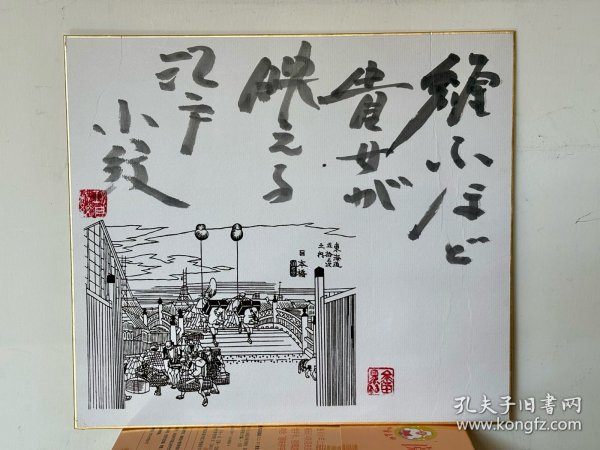 纏ふほど
貴女が
映える
江戸
小紋
東海道
五拾三次
之内
日本橋
孔夫子旧书网